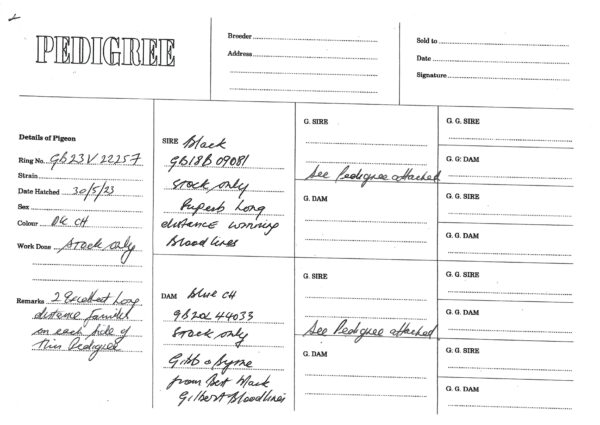 PEDIGREE
Breeder
Address
Sold to
Date
Signature
Details of Pigeon
Ring No. GB23V22257
Strain
Date Hatched 30/5/23
Sex
Colour DK CH
Work Done Stock only
Remarks 2 Excellent Long
distance families
on each side of
this Pedigree
SIRE Black
GB18B 09081
Stock only
Superb Long
distance winning
Bloodlines
DAM Blue CH
GB20L 44033
Stock only
Gibb & Byrne
from Best Mark
Gilbert Bloodlines
G. SIRE
See Pedigree attached
G. DAM
G. SIRE
See Pedigree attached
G. DAM
G. G. SIRE
G. G. DAM
G. G. SIRE
G. G. DAM
G. G. SIRE
G. G. DAM
G. G. SIRE
G. G. DAM